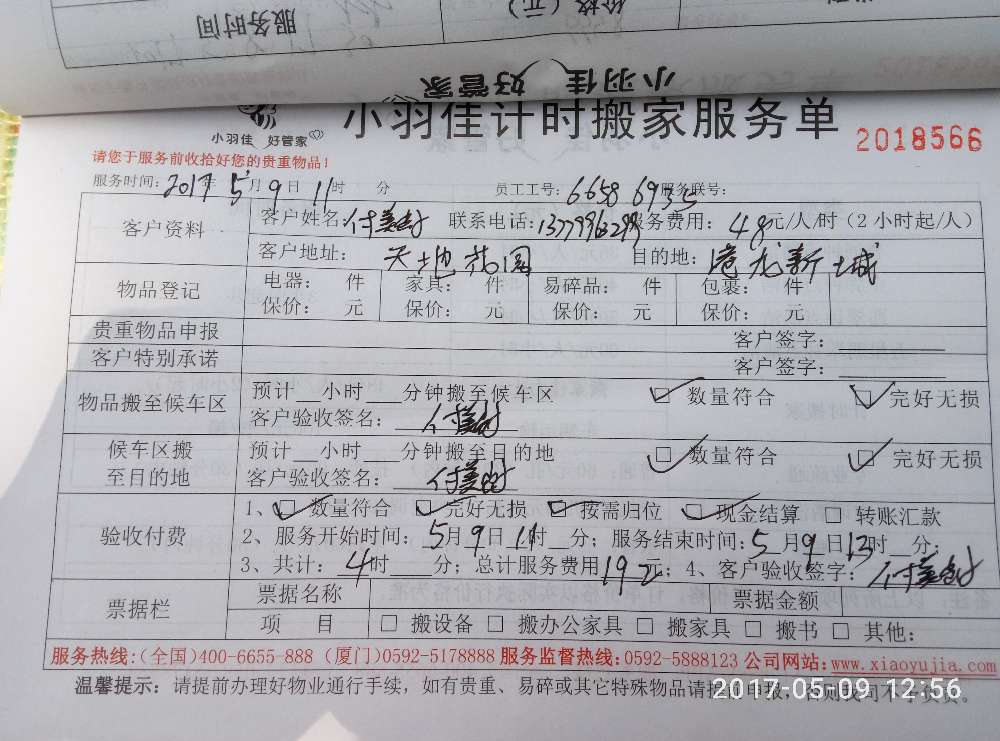 服务时间
价格（元）
小羽佳 好管家
小羽佳 好管家
小羽佳计时搬家服务单
2018566
请您于服务前收拾好您的贵重物品！
服务时间：2017年5月9日11时 分 员工工号：6658 6935 服务联号：
客户资料
客户姓名：付美 联系电话： 服务费用：48元/人/时（2小时起/人）
客户地址：天地花园 目的地：港龙新城
物品登记
电器： 件 家具： 件 易碎品： 件 包裹： 件
保价： 元 保价： 元 保价： 元 保价： 元
贵重物品申报 客户签字：
客户特别承诺 客户签字：
物品搬至候车区
预计__小时___分钟搬至候车区 ☑ 数量符合 ☑ 完好无损
客户验收签名：付美
候车区搬至目的地
预计__小时___分钟搬至目的地 ☑ 数量符合 ☑ 完好无损
客户验收签名：付美
验收付费
1、☑ 数量符合 ☑ 完好无损 ☑ 按需归位 ☑ 现金结算 □ 转账汇款
2、服务开始时间：5月9日11时__分；服务结束时间：5月9日13时__分；
3、共计：4时___分；总计服务费用192元；4、客户验收签字：付美
票据栏
票据名称 票据金额
项 目 □ 搬设备 □ 搬办公家具 □ 搬家具 □ 搬书 □ 其他：
服务热线：（全国）400-6655-888 （厦门）0592-5178888 服务监督热线：0592-5888123 公司网站：www.xiaoyujia.com
温馨提示：请提前办理好物业通行手续，如有贵重、易碎或其它特殊物品请提前申报，否则我司不予负责。
2017-05-09 12:56